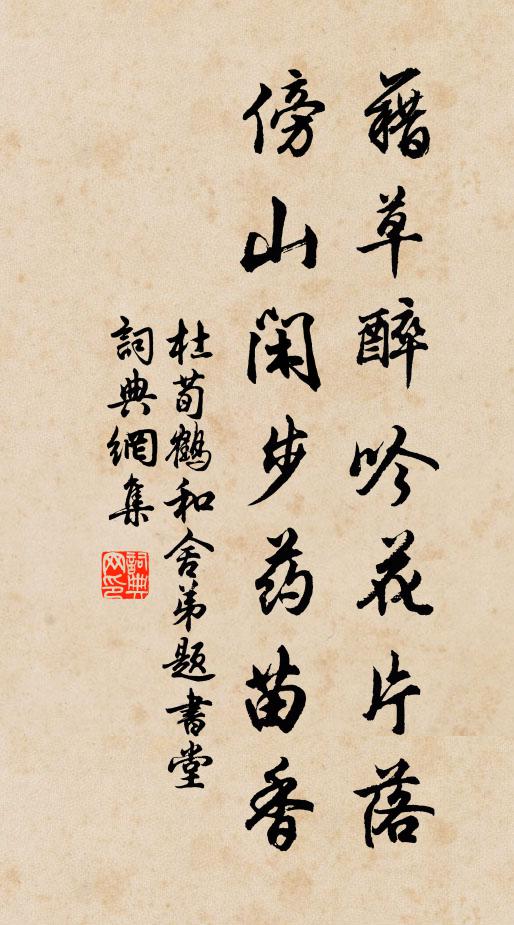 藉草醉吟花片落
傍山闲步药苗香
杜荀鶴和舍弟題書堂
詞典網集
詞典网印